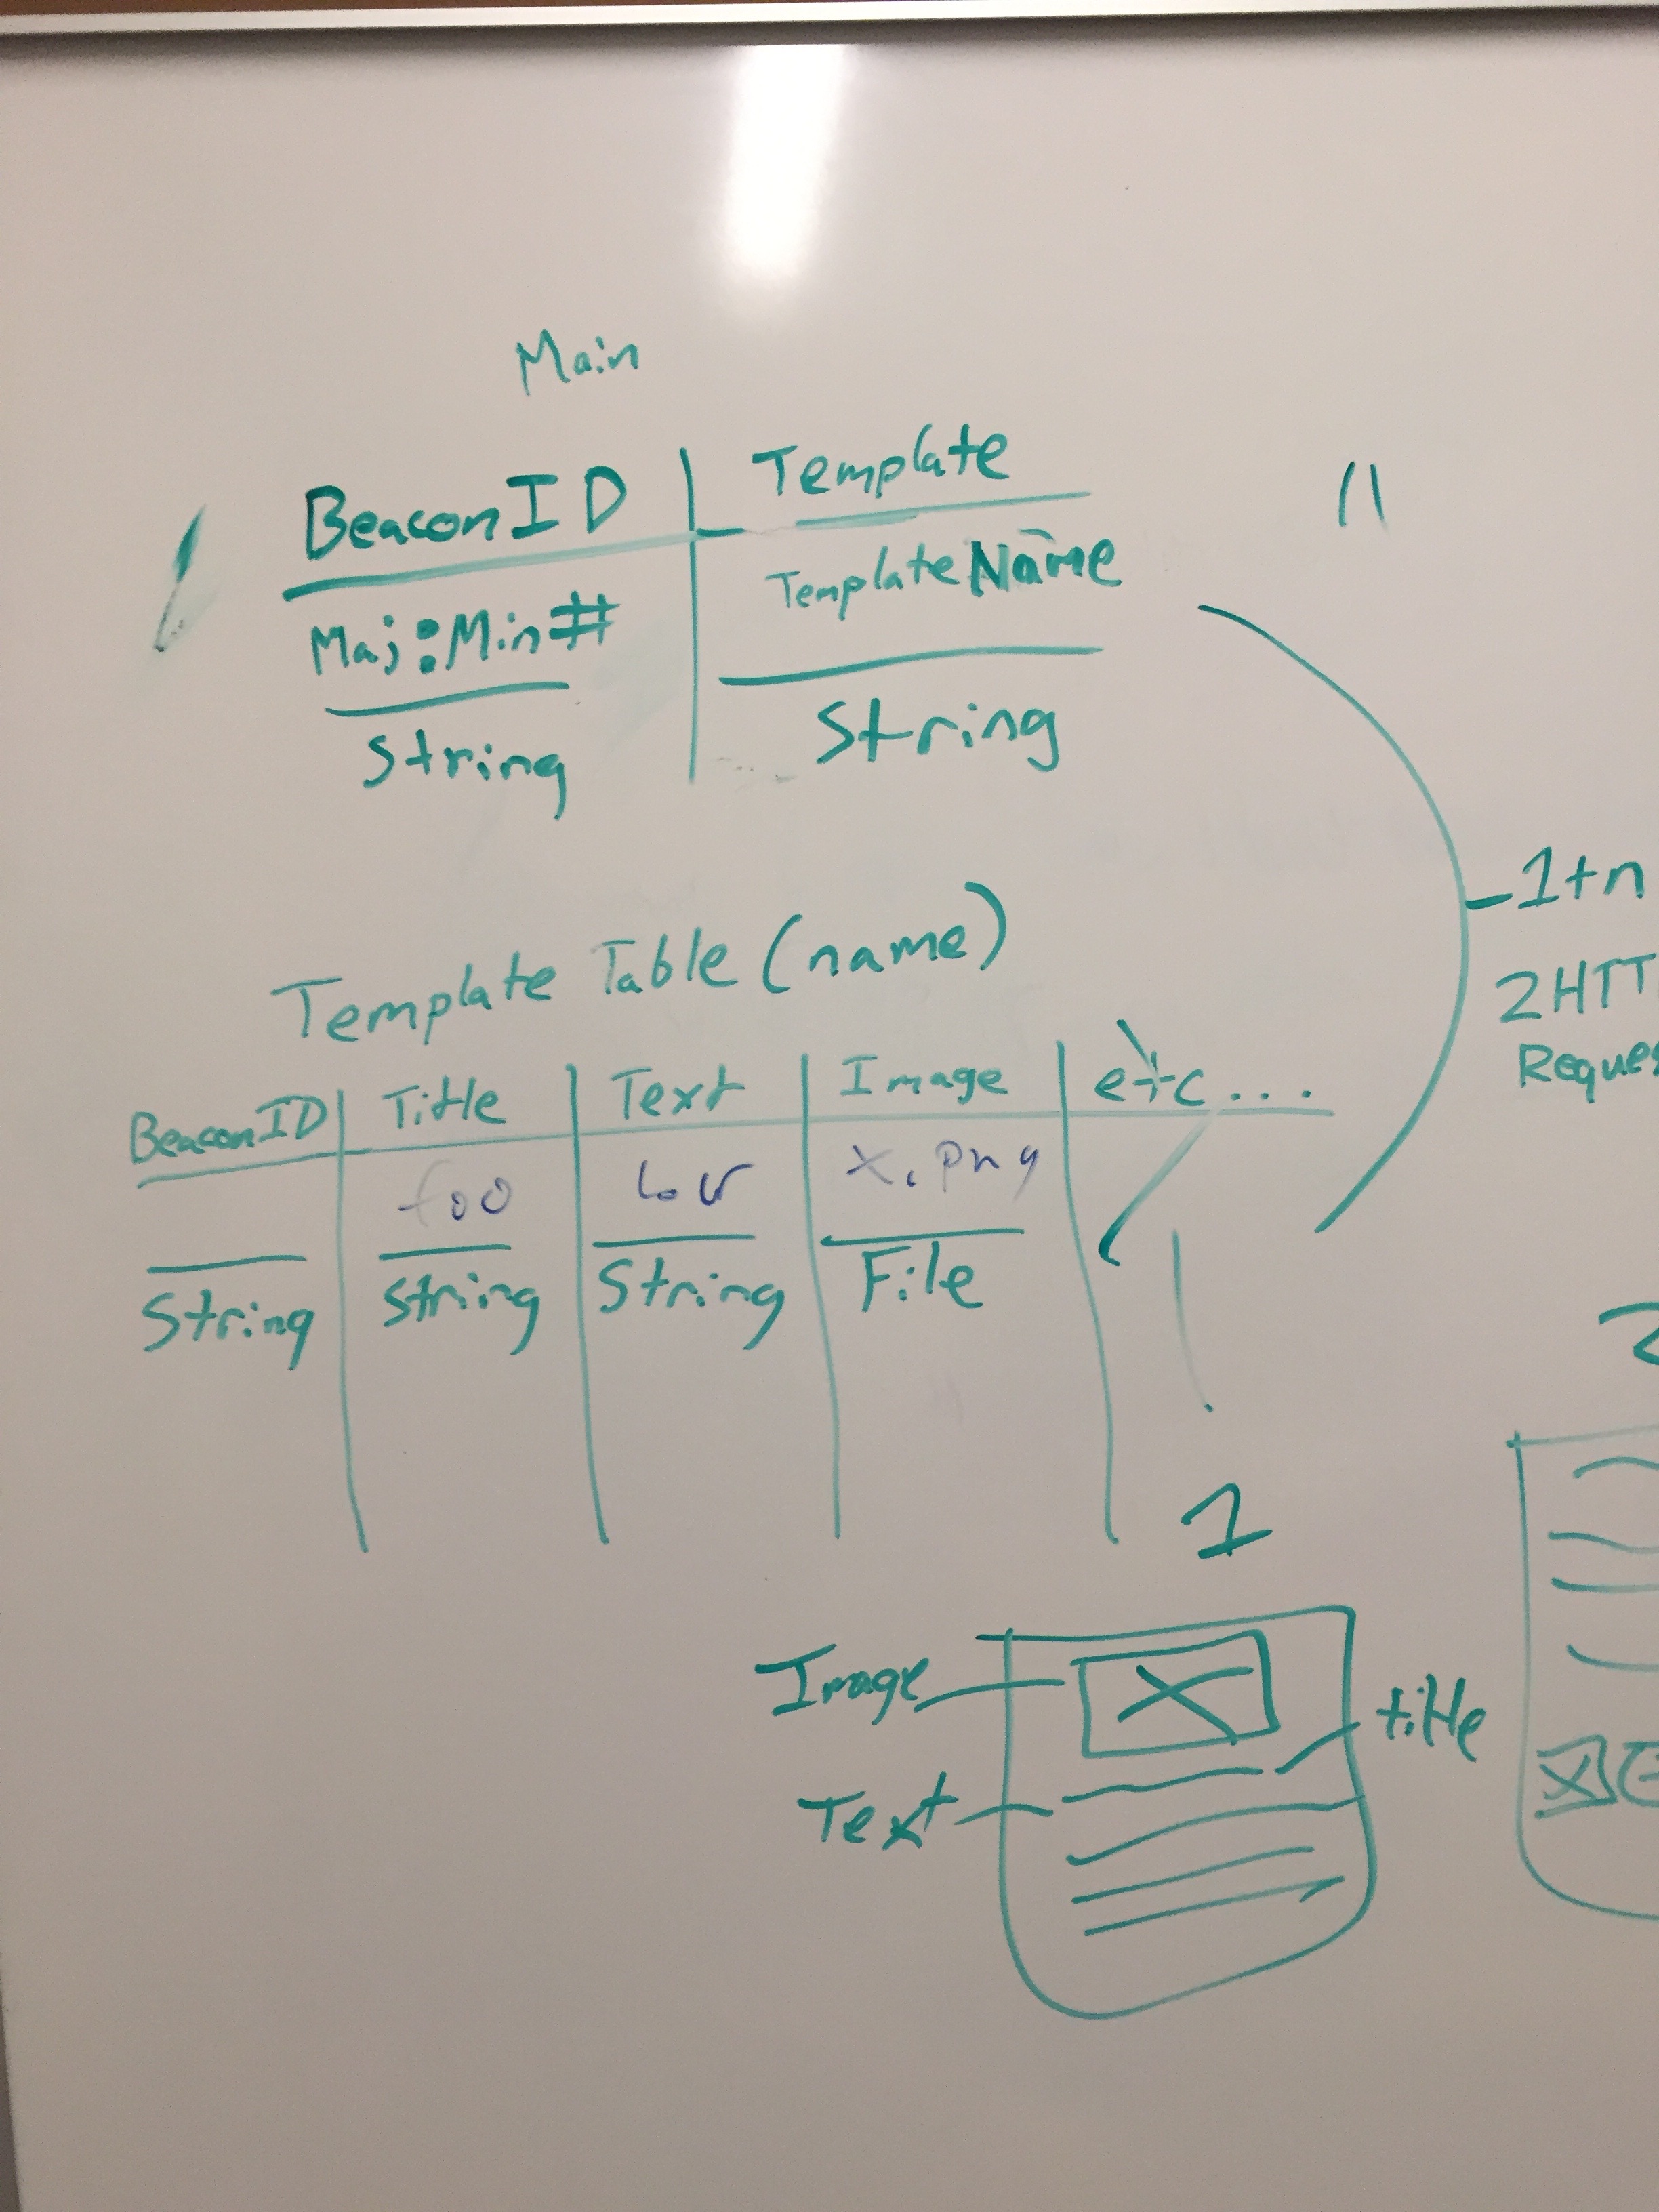 Main
BeaconID Template
Maj:Min# TemplateName
String String
-1+n
2HTT
Reques
Template Table (name)
BeaconID Title Text Image etc...
foo x.png
String String String File
1
2
Image
title
Text